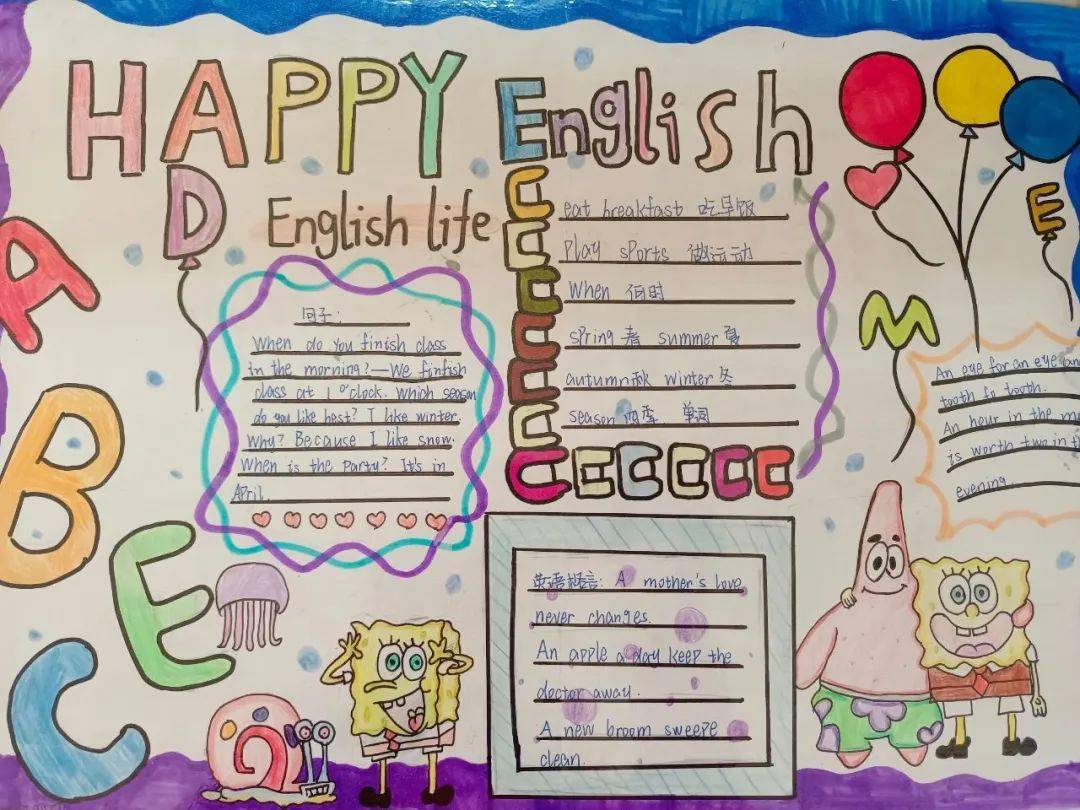 HAPPY English
D
English life
A
B
E
C
句子:
When do you finish class
in the morning?—We finfish
class at 1 o'clock. Which season
do you like best? I like winter.
Why? Because I like snow.
When is the party? It's in
April.
eat breakfast 吃早饭
Play sports 做运动
When 何时
spring 春 summer 夏
autumn 秋 winter 冬
season 四季 单词
英语格言: A mother's love
never changes.
An apple a day keep the
doctor away.
A new broom sweeps
clean.
E
M
An eye for an eye and
tooth fo tooth.
An hour in the mo
is worth two in th
evening.